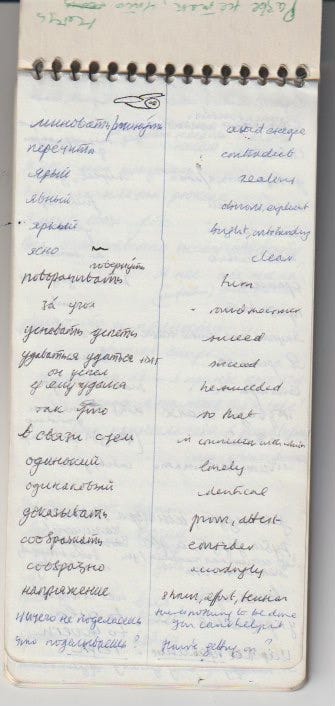 Разве не так, что
миновать/минуть avoid, escape
перечить contradict
ярый zealous
явный obvious, explicit
яркий bright, outstanding
ясно clear
повернуть
поворачивать turn
за угол round the corner
успевать успеть succeed
удаваться удаться + DAT succeed
он успел
ему удалось he succeeded
так что so that
в связи с чем in connection with which
одинокий lonely
одинаковый identical
доказывать prove, attest
соображать consider
сообразно accordingly
напряжение strain, effort, tension
ничего не поделаешь there's nothing to be done
you can't help it
что поделываешь? How're getting on?